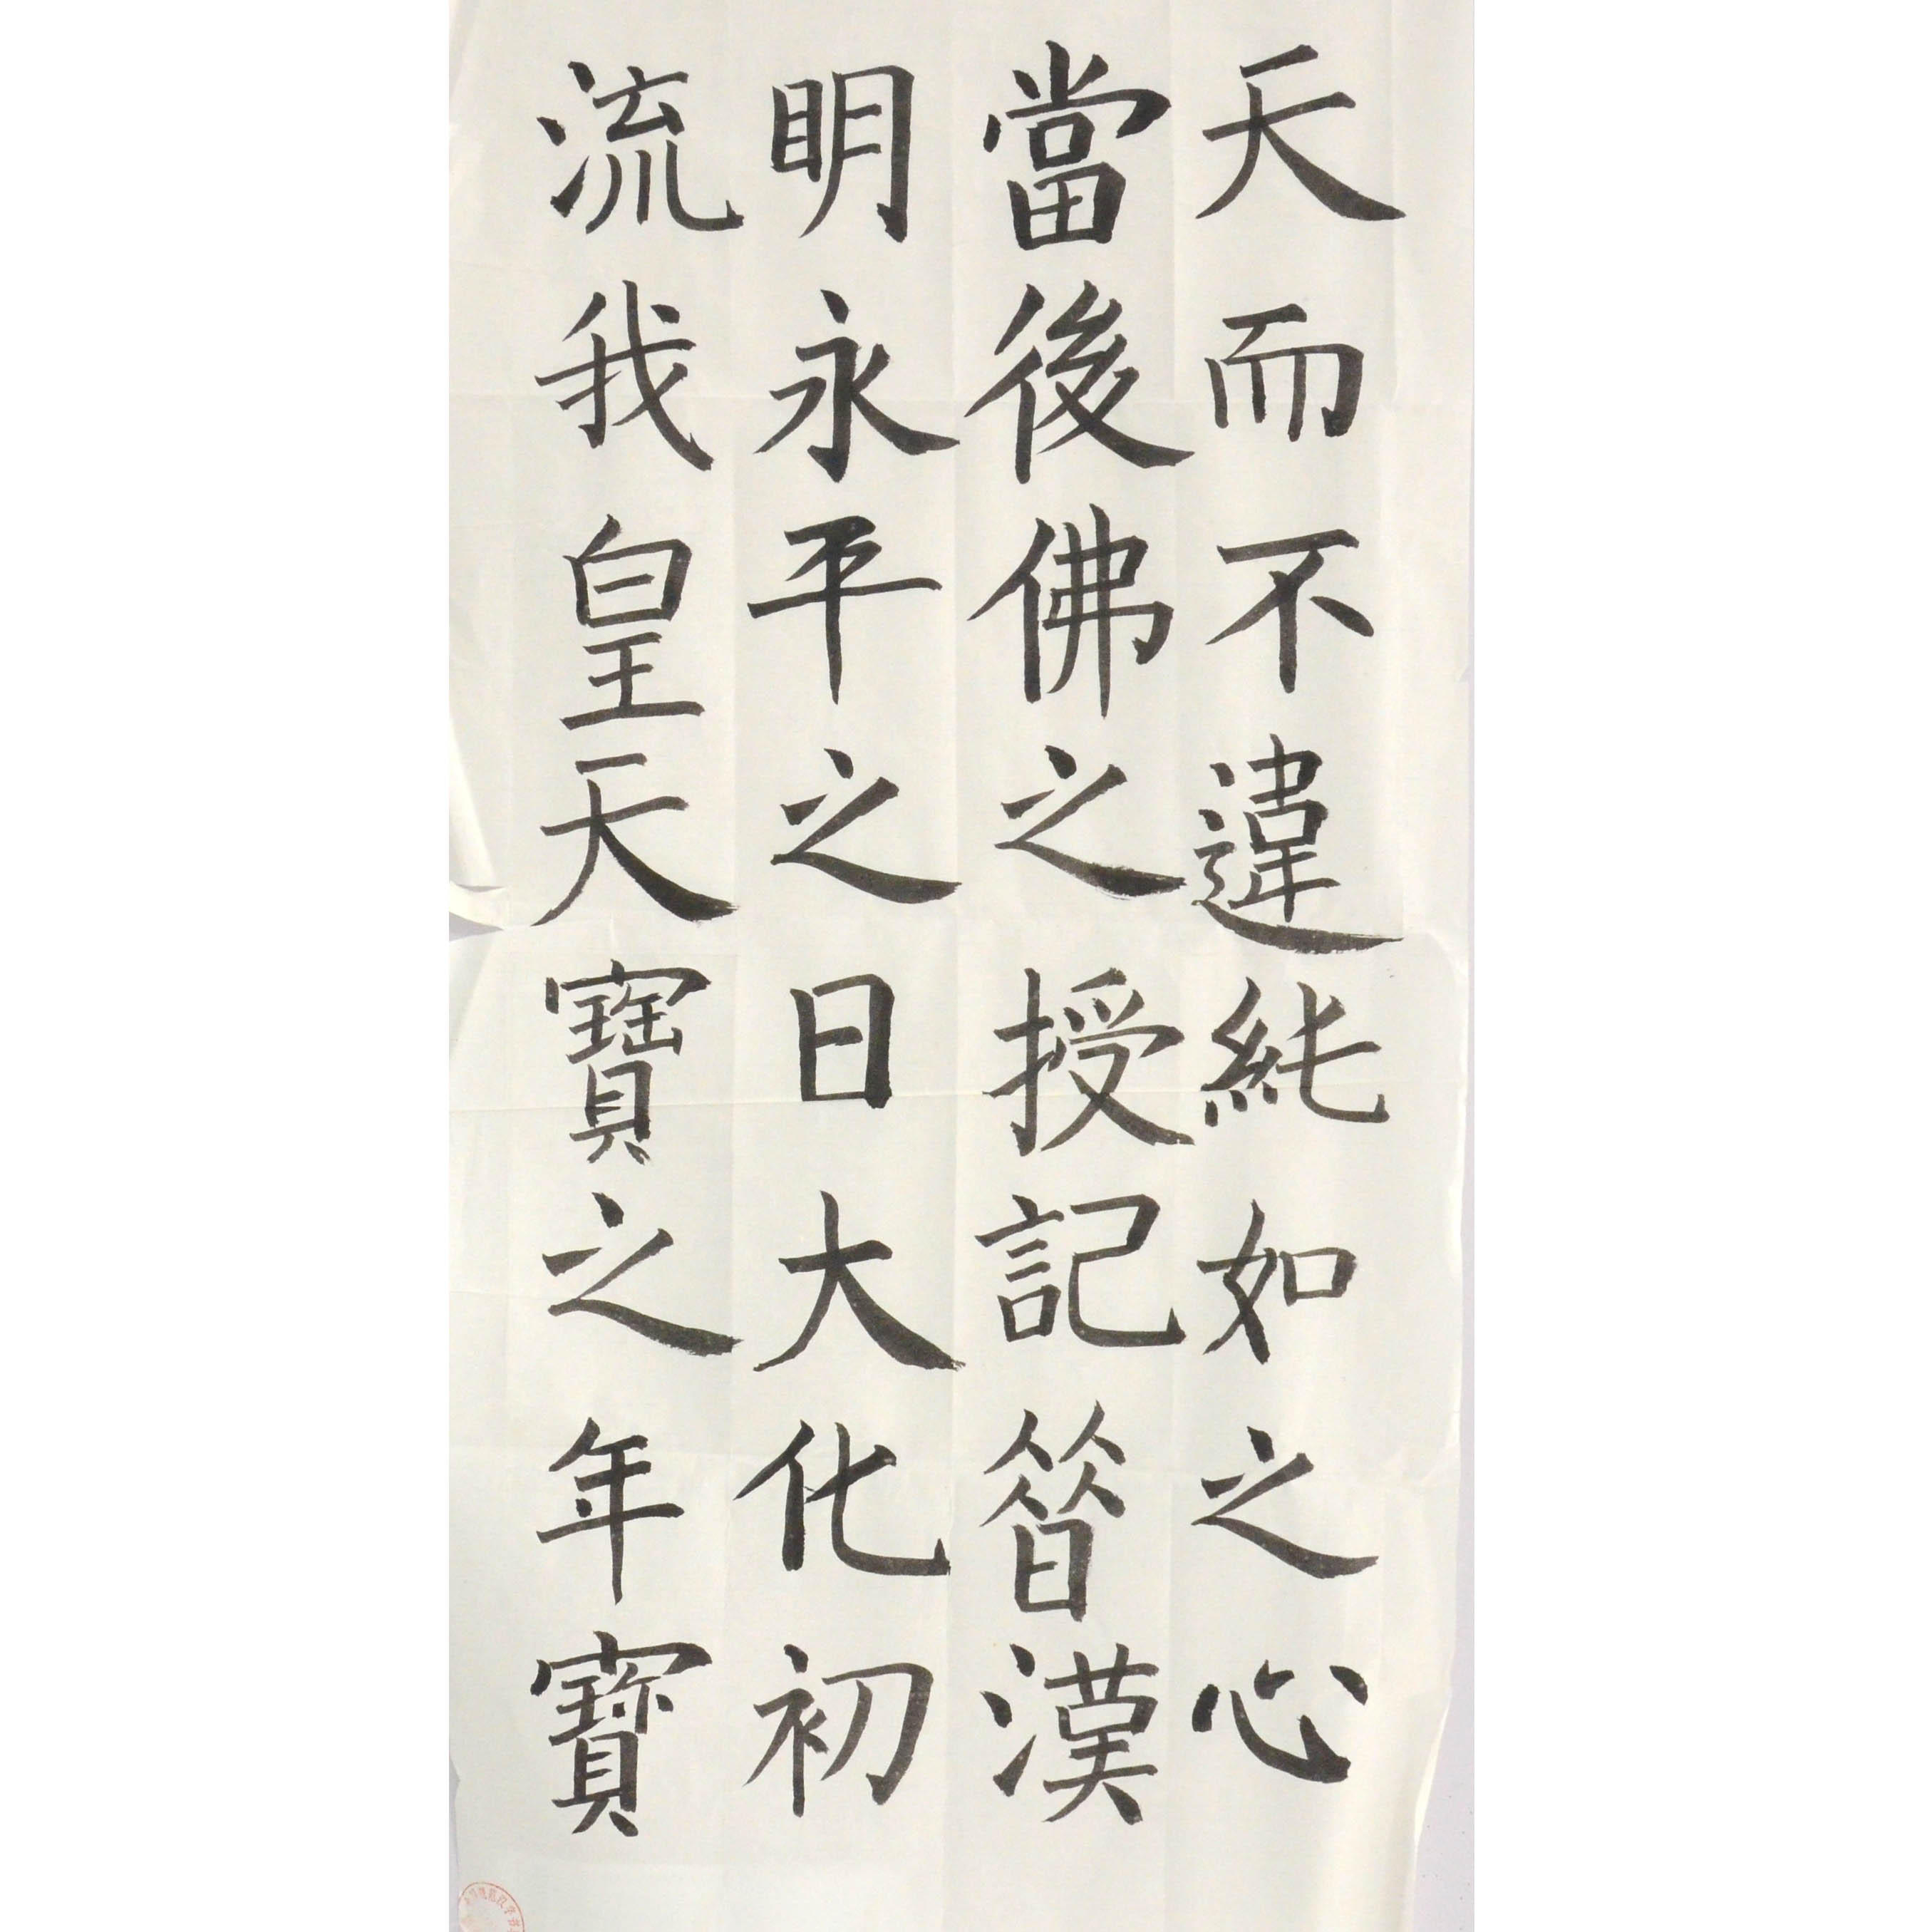 天而不違純如之心
當後佛之授記昔漢
明永平之日大化初
流我皇天寶之年寶